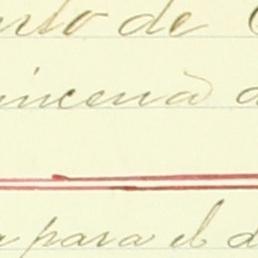 nto de
incena d
para el d